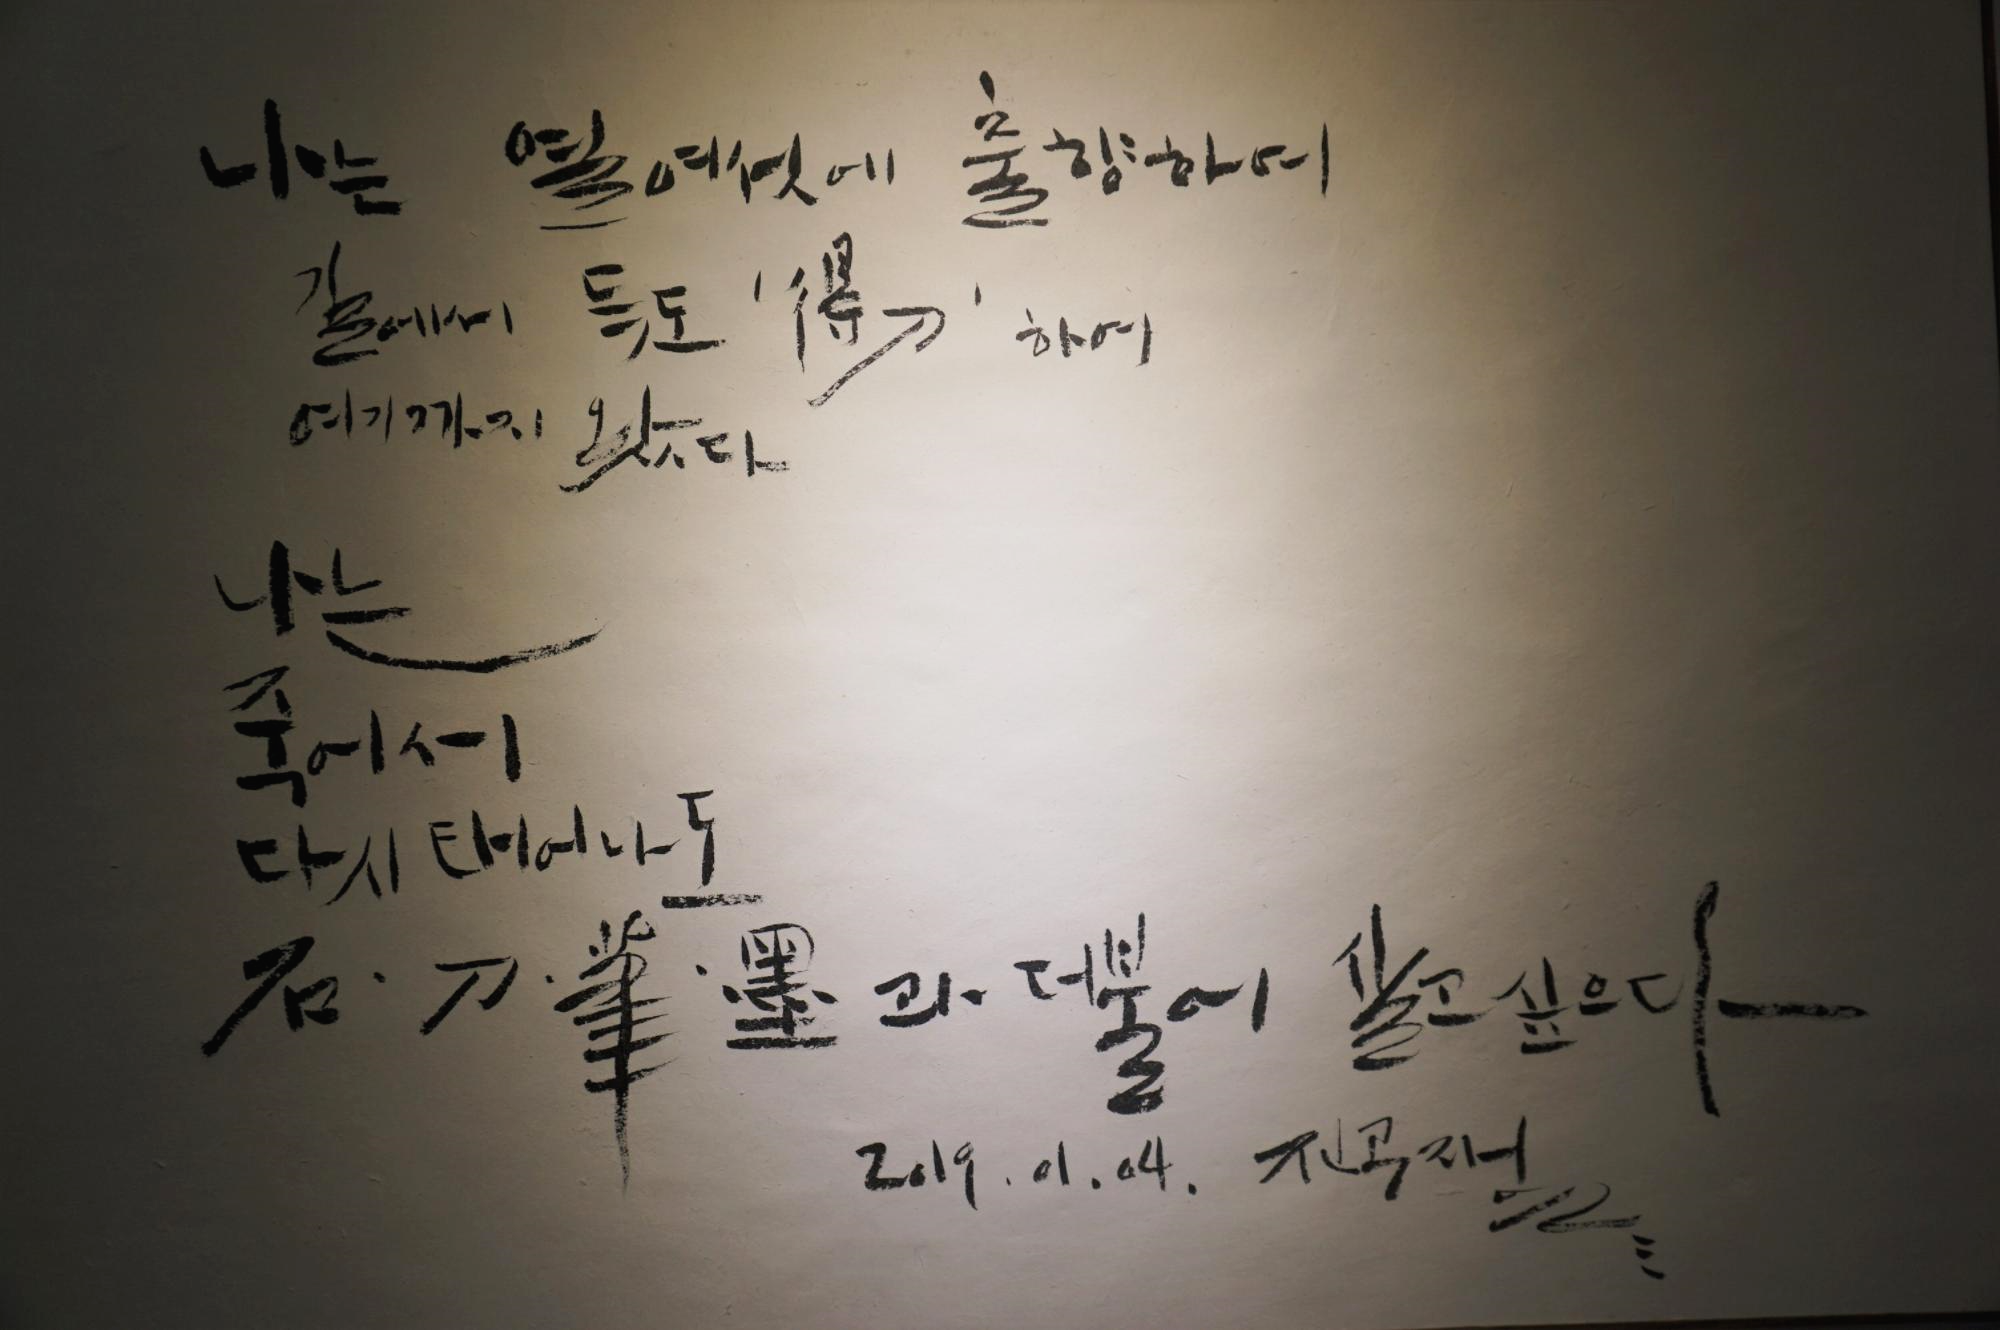 나는 열여섯에 출향하여
길에서 득도 '得刀' 하여
여기까지 왔다
나는
죽어서
다시 태어나도
石·刀·筆·墨과 더불어 살고 싶으다
2019.01.04.